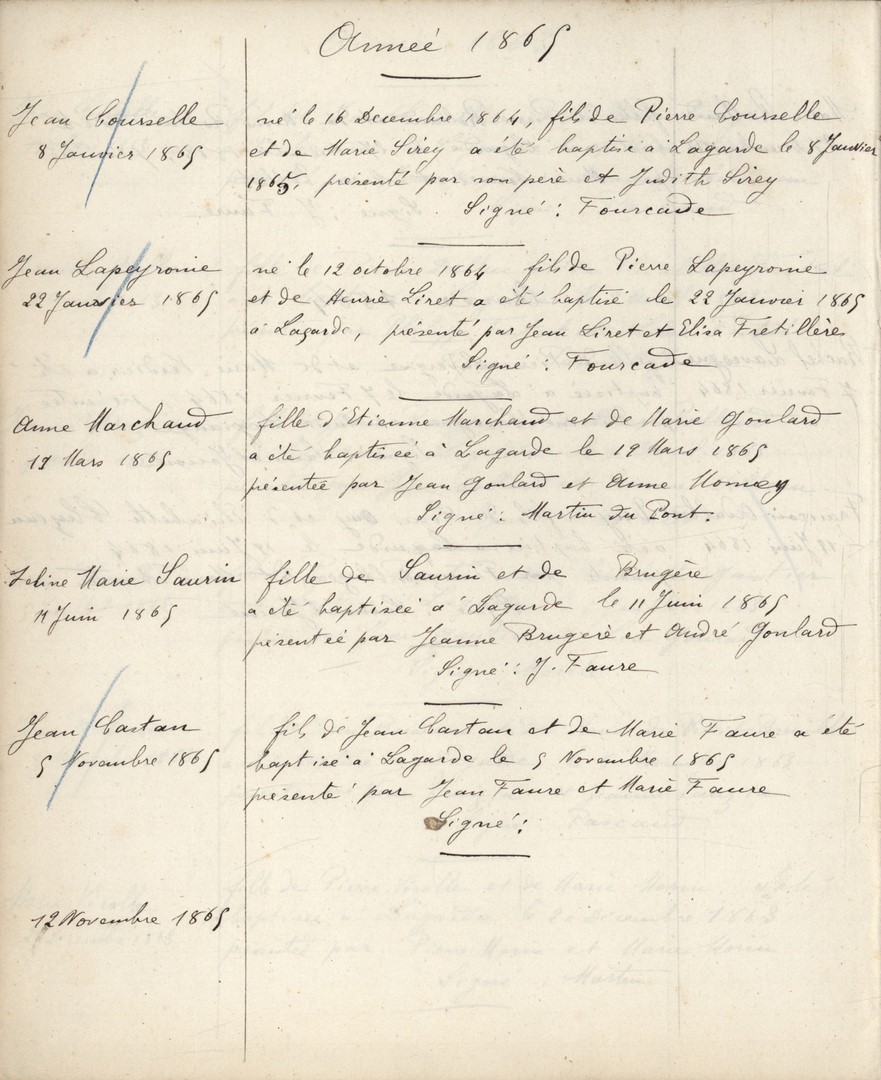 Anneé 1865
Jean Courselle
8 Janvier 1865
né le 16 Decembre 1864, fils de Pierre Courselle
et de Marie Sirey a été baptisé à Lagarde le 8 Janvier
1865, présenté par son peré et Judith Sirey
Signé : Fourcade
Jean Lapeyronie
22 Janvier 1865
né le 12 octobre 1864 fils de Pierre Lapeyronie
et de Henrie Liret a été baptisé le 22 Janvier 1865
à Lagarde, présenté par Jean Liret et Elisa Fretillères
Signé : Fourcade
Anne Marchand
19 Mars 1865
fille d'Etienne Marchand et de Marie Goulard
a été baptiseé à Lagarde le 19 Mars 1865
présenteé par Jean Goulard et Anne
Signé : Martin du Pont.
Marie Saurin
11 Juin 1865
fille de Saurin et de Brugère
a été baptiseé à Lagarde le 11 Juin 1865
présenteé par Jeanne Brugerè et André Goulard
Signé : J. Faure
Jean Castan
5 Novembre 1865
fils de Jean Castan et de Marie Faure a été
baptisé à Lagarde le 5 Novembre 1865
présenté par Jean Faure et Marie Faure
Signé :
12 Novembre 1865